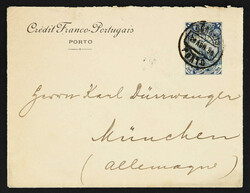 Crédit Franco-Portugais
PORTO
Herrn Karl Dürrwanger
München
(Allemagne)